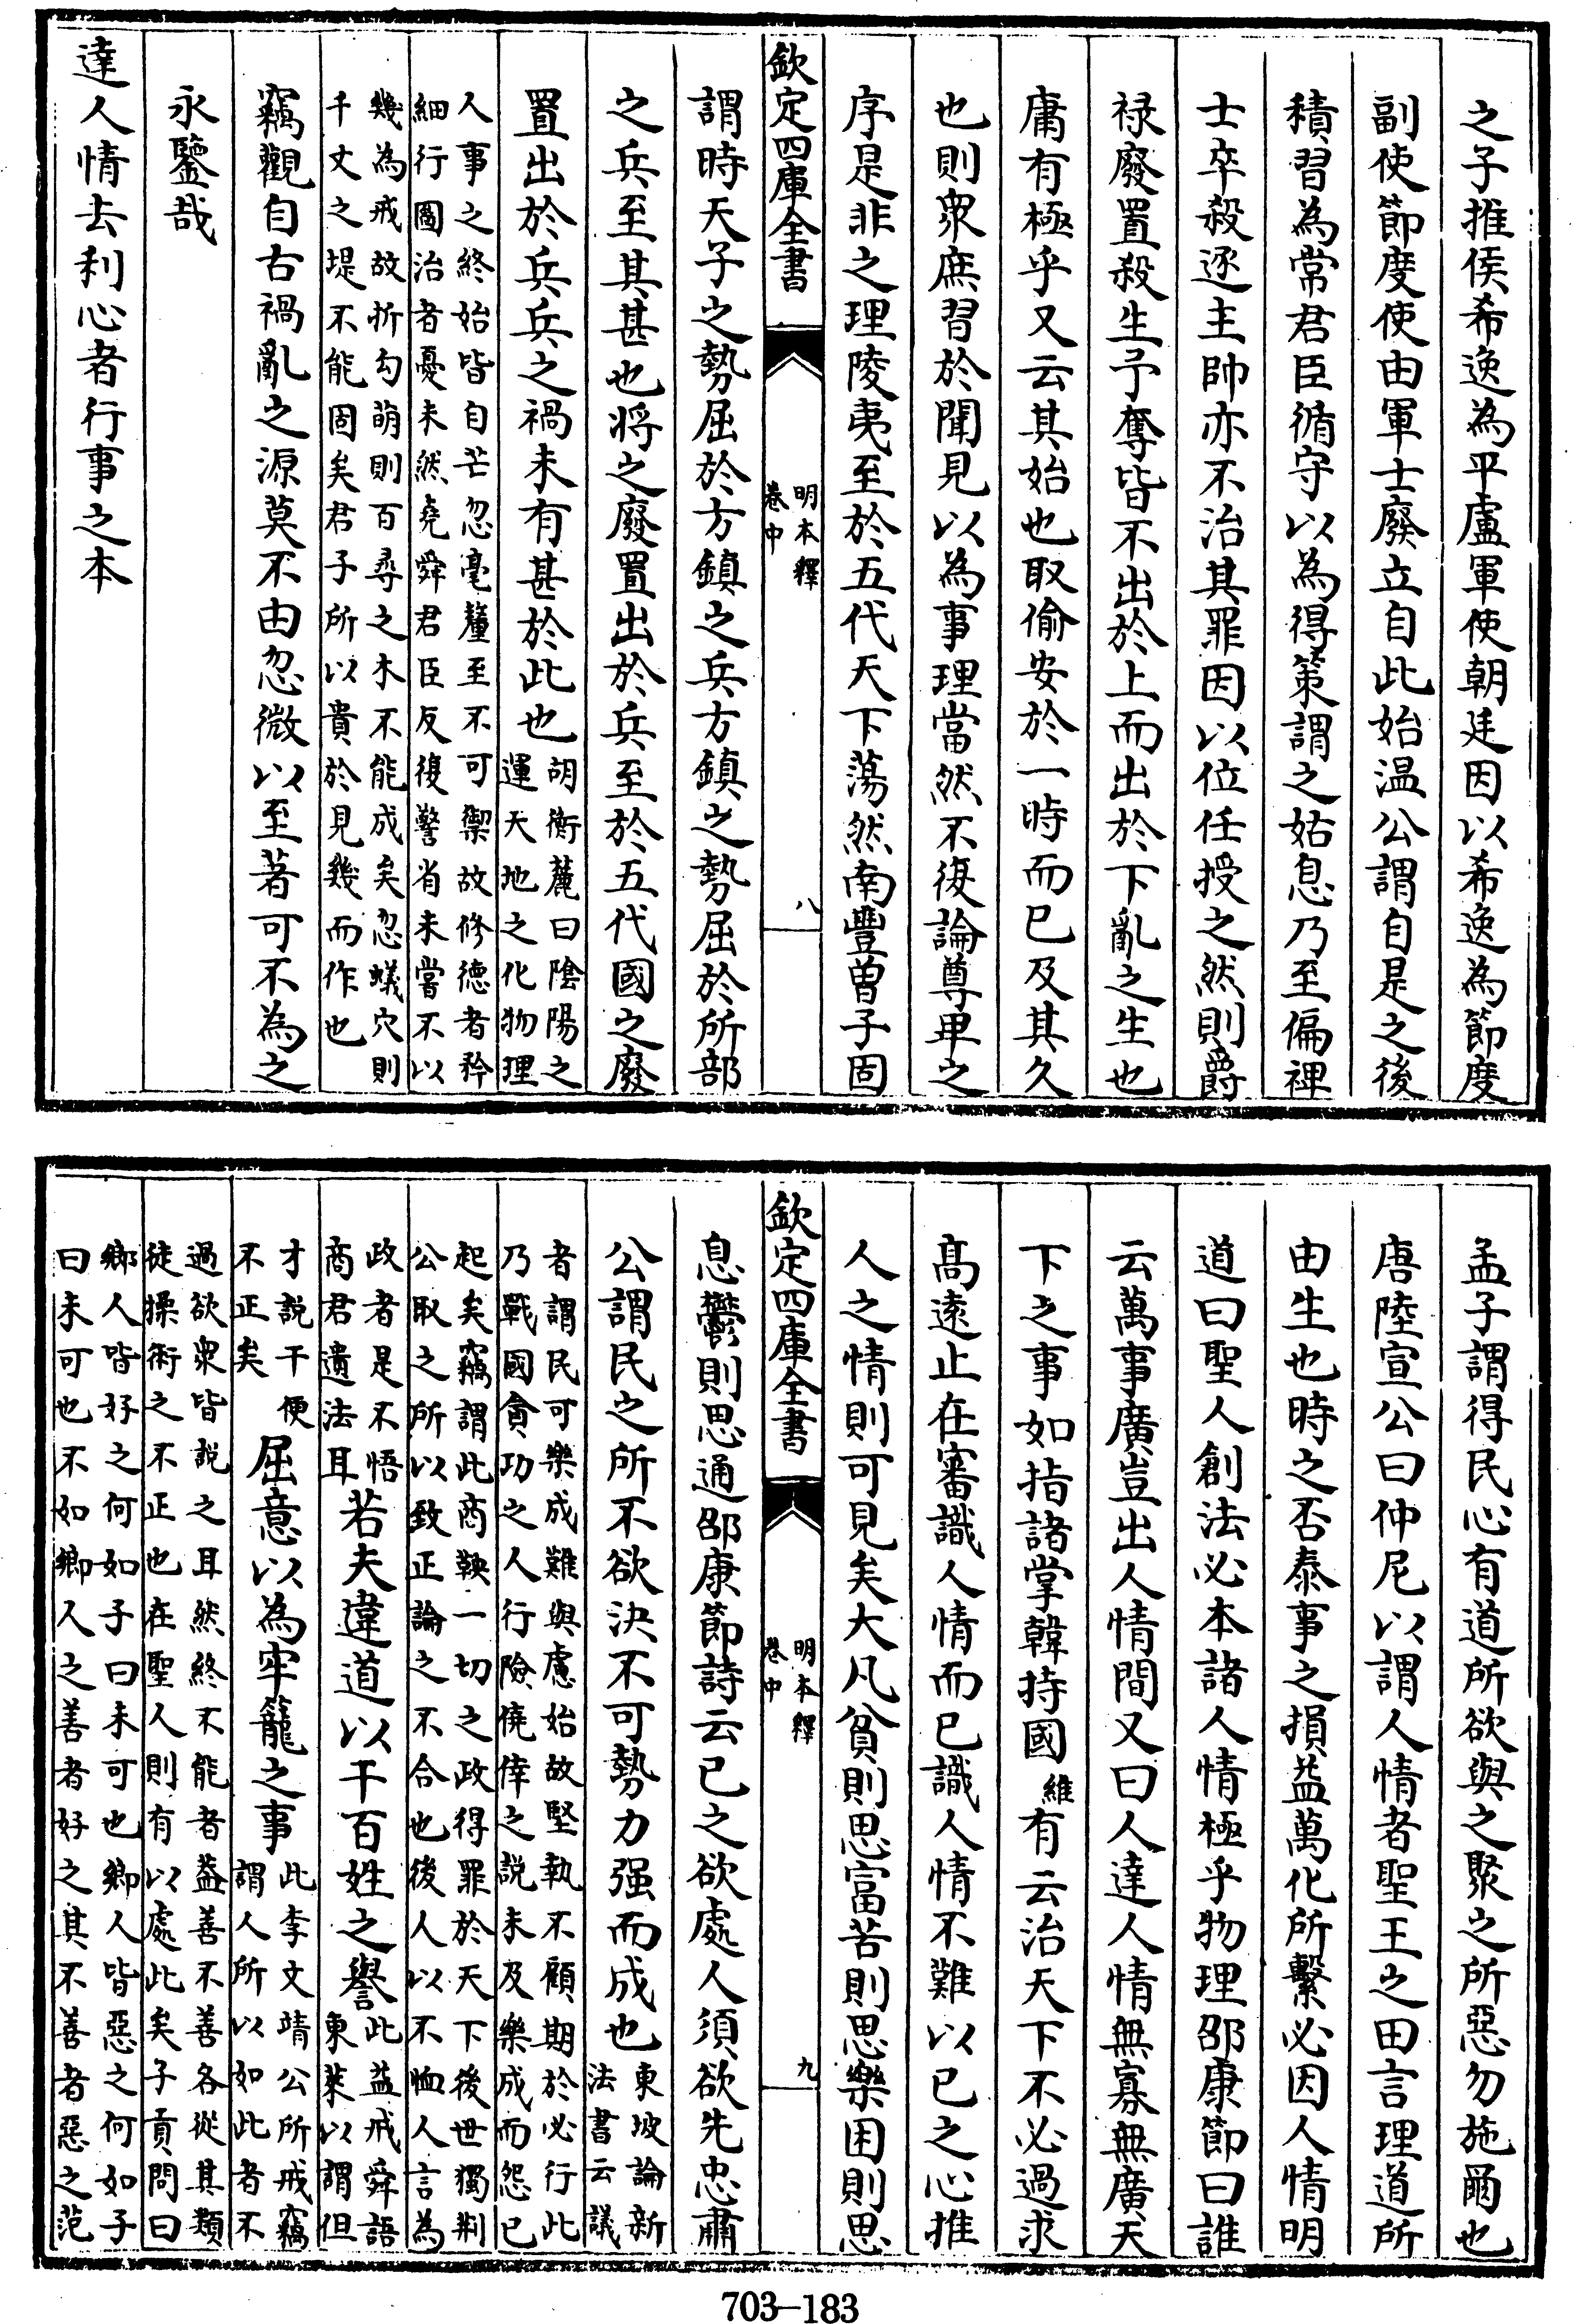 之子推侯希逸為平盧軍使朝廷因以希逸為節度
副使節度使由軍士廢立自此始温公謂自是之後
積習為常君臣循守以為得策謂之姑息乃至偏裨
士卒殺逐主帥亦不治其罪因以位任授之然則爵
禄廢置殺生予奪皆不出於上而出於下亂之生也
庸有極乎又云其始也取偷安於一時而已及其久
也則衆庶習於聞見以為事理當然不復論尊卑之
序是非之理陵夷至於五代天下蕩然南豐曽子固
欽定四庫全書
明本釋
卷中
八
謂時天子之勢屈於方鎮之兵方鎮之勢屈於所部
之兵至其甚也將之廢置出於兵至於五代國之廢
置出於兵兵之禍未有甚於此也胡衡麓曰隂陽之
運天地之化物理
人事之終始皆自芒忽毫釐至不可禦故修徳者矜
細行圖治者憂未然堯舜君臣反復警省未嘗不以
幾為戒故折勾萌則百尋之木不能成矣忽蟻穴則
千丈之堤不能固矣君子所以貴於見幾而作也
竊觀自古禍亂之源莫不由忽微以至著可不為之
永鑒哉
達人情去利心者行事之本
孟子謂得民心有道所欲與之聚之所惡勿施爾也
唐陸宣公曰仲尼以謂人情者聖王之田言理道所
由生也時之否泰事之損益萬化所繫必因人情明
道曰聖人創法必本諸人情極乎物理邵康節曰誰
云萬事廣豈出人情間又曰人達人情無寡無廣天
下之事如指諸掌韓持國維有云治天下不必過求
髙遠止在審識人情而已識人情不難以已之心推
人之情則可見矣大凡貧則思富苦則思樂困則思
欽定四庫全書
明本釋
卷中
九
息鬱則思通邵康節詩云已之欲處人須欲先忠肅
公謂民之所不欲決不可勢力强而成也東坡論新
法書云議
者謂民可樂成難與慮始故堅執不顧期於必行此
乃戰國貪功之人行險僥倖之説未及樂成而怨已
起矣竊謂此商鞅一切之政得罪於天下後世獨荆
公取之所以致正論之不合也後人以不恤人言為
政者是不悟
商君遺法耳若夫違道以干百姓之譽此益戒舜語
東萊以謂但
才説干便
不正矣屈意以為牢籠之事此李文靖公所戒竊
謂人所以如此者不
過欲衆皆説之耳然終不能者葢善不善各從其類
徒操術之不正也在聖人則有以處此矣子貢問曰
鄉人皆好之何如子曰未可也鄉人皆惡之何如子
曰未可也不如鄉人之善者好之其不善者惡之范
703—183